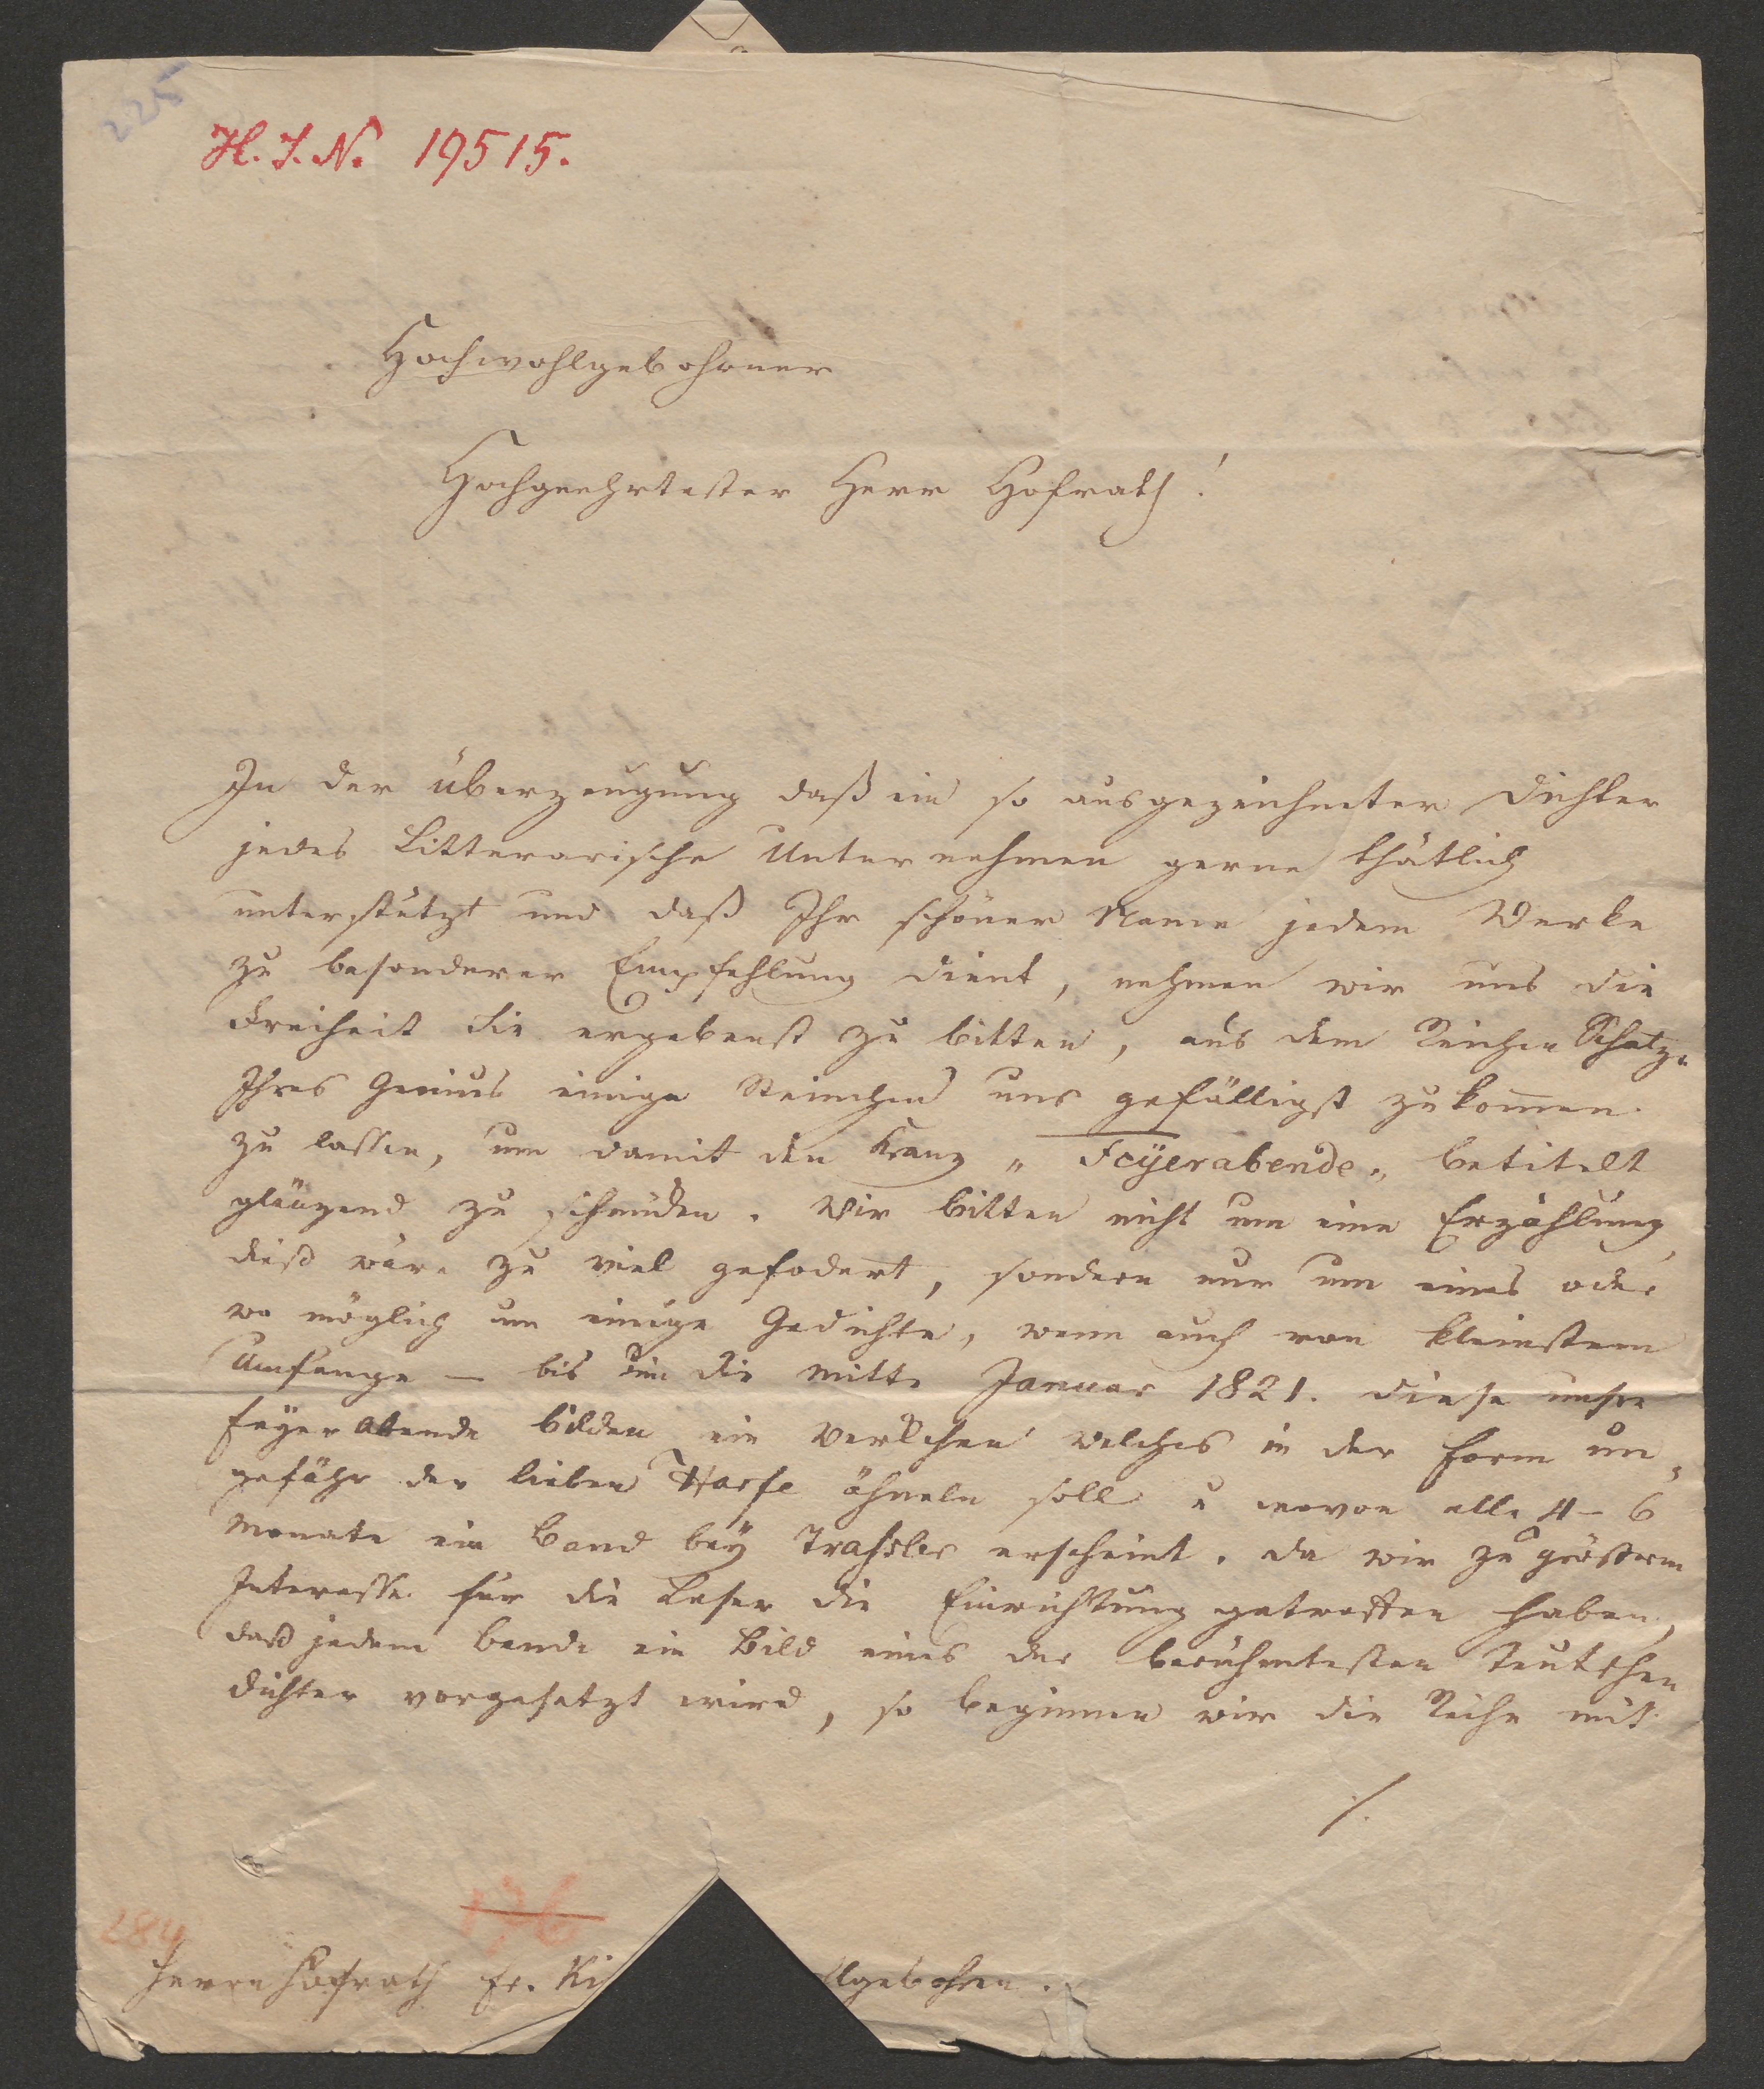 225
H. I. N. 19515.
Hochwohlgebohrner
Hochgeehrtester Herr Hofrath!
In der Überzeugung daß ein so ausgezeichneter Dichter
jedes Litterarische Unternehmen gerne thätlich
unterstützt und daß Ihr schöner Name jedem Werke
zu besonderer Empfehlung dient, nehmen wir uns die
Freiheit Sie ergebenst zu bitten, aus dem Reichen Schatze
Ihres Genius einige Steinchen uns gefälligst zukom̅en
zu lassen, um damit den Kranz „Feÿerabende„ betitelt
glänzend zu schmücken. Wir bitten nicht um eine Erzählung,
dieß wäre zu viel gefodert, sondern nur um eines oder
wo möglich um einige Gedichte, wenn auch von kleinstem
Umfange — bis in die Mitte Januar 1821. Diese unsre
Feyerabende bilden ein Werkchen welches in der Form un„
gefähr der lieben Harfe ähneln soll u wovon alle 4–6
Monate ein Band beÿ Traßler erscheint. Da wir zu größerm
Interesse für die Leser die Einrichtung getroffen haben,
daß jedem Bande ein Bild eines der berühmtesten Teutschen
Dichter vorgesetzt wird, so beginnen wir die Reihe mit
./.
176
284
Herrn Hofrath Fr. Ki lgebohren.